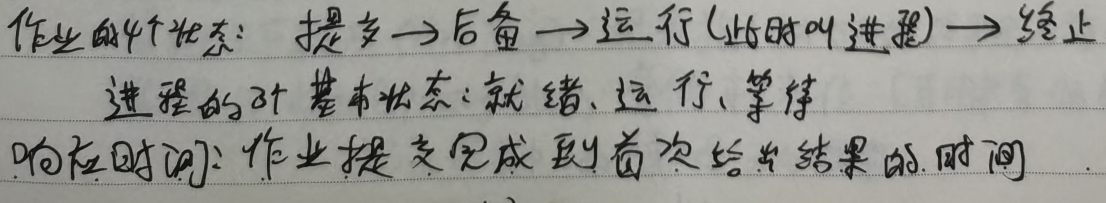 作业的4个状态: 提交→后备→运行(此时叫进程)→终止
进程的3个基本状态:就绪、运行、等待
响应时间:作业提交完成到首次给出结果的时间